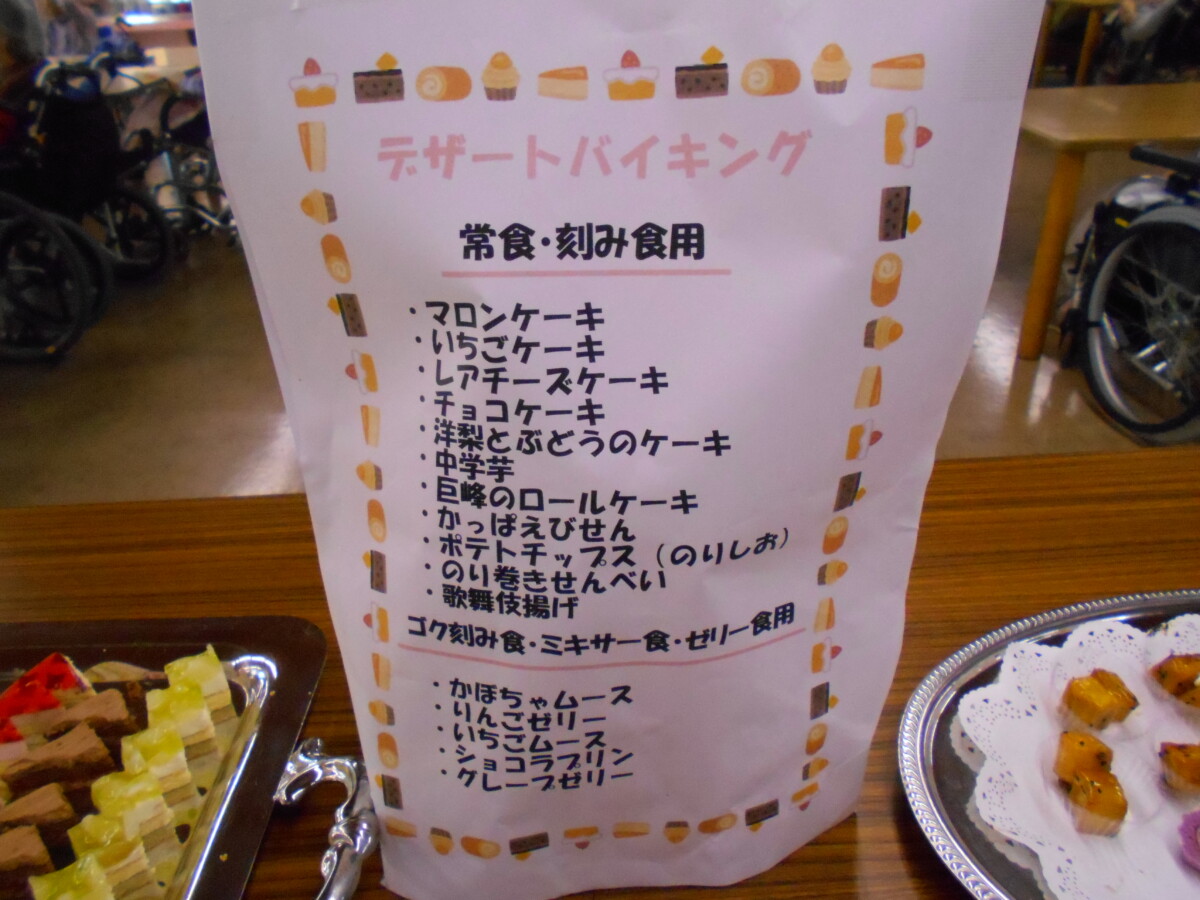 デザートバイキング
常食・刻み食用
・マロンケーキ
・いちごケーキ
・レアチーズケーキ
・チョコケーキ
・洋梨とぶどうのケーキ
・中学芋
・巨峰のロールケーキ
・かっぱえびせん
・ポテトチップス（のりしお）
・のり巻きせんべい
・歌舞伎揚げ
ゴク刻み食・ミキサー食・ゼリー食用
・かぼちゃムース
・りんごゼリー
・いちごムース
・ショコラプリン
・グレープゼリー